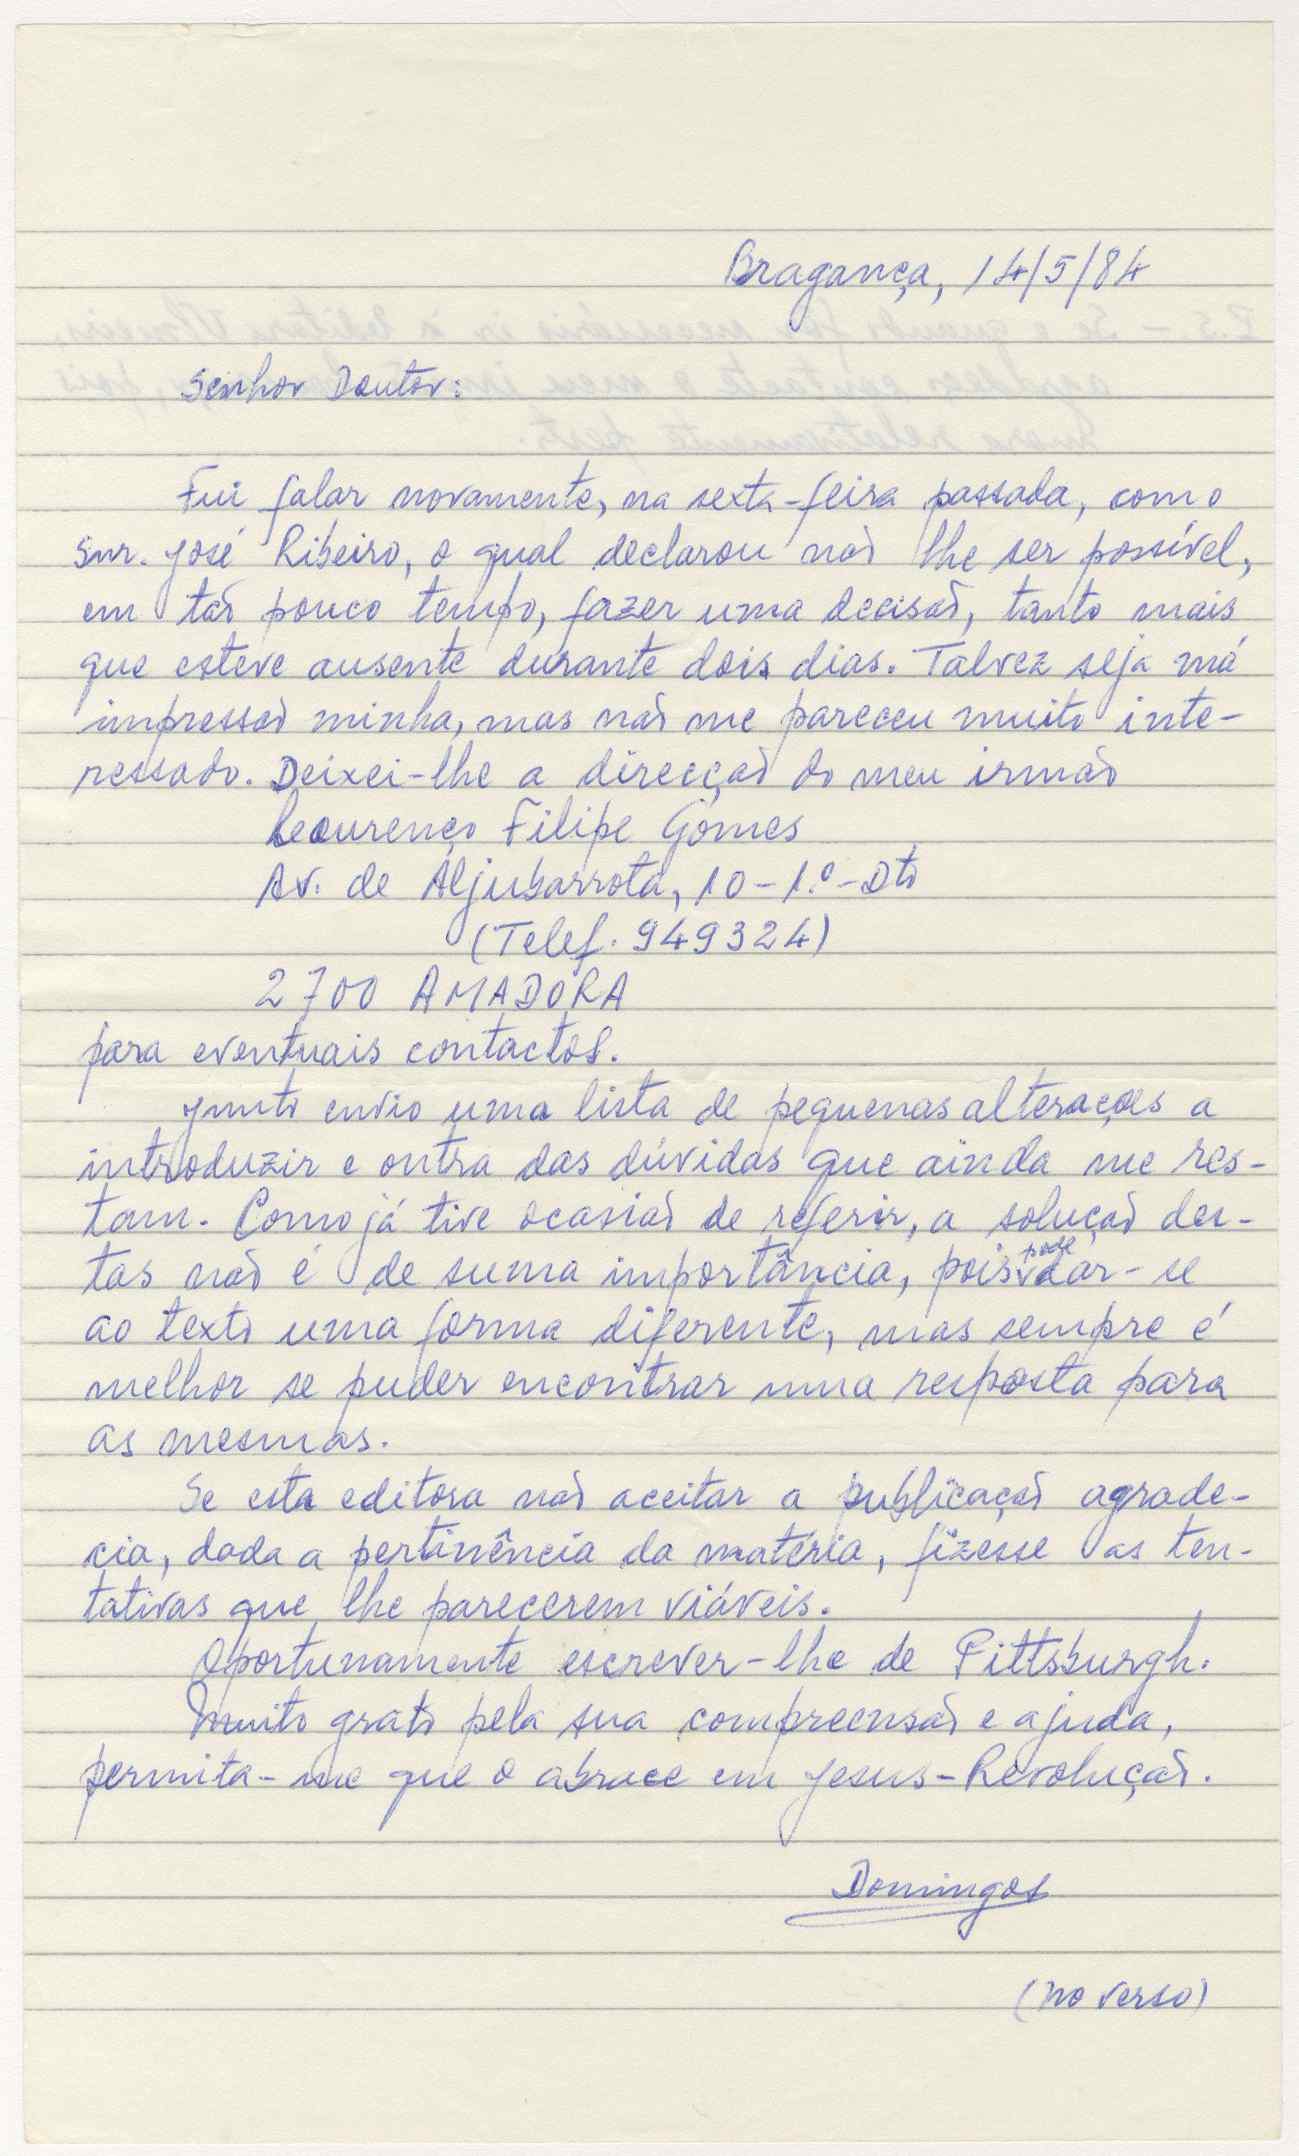 Bragança, 14/5/84
Senhor Doutor:
Fui falar novamente, na sexta-feira passada, com o
Snr. José Ribeiro, o qual declarou não lhe ser possível,
em tão pouco tempo, fazer uma decisão, tanto mais
que esteve ausente durante dois dias. Talvez seja má
impressão minha, mas não me pareceu muito inte-
ressado. Deixei-lhe a direcção do meu irmão
Lourenço Filipe Gomes
Av. de Aljubarrota, 10-1.º-Dto
(Telef. 949324)
2700 AMADORA
para eventuais contactos.
Junto envio uma lista de pequenas alterações a
introduzir e outra das dúvidas que ainda me res-
tam. Como já tive ocasião de referir, a solução des-
tas não é de suma importância, pois pode dar-se
ao texto uma forma diferente, mas sempre é
melhor se puder encontrar uma resposta para
as mesmas.
Se esta editora não aceitar a publicação agrade-
cia, dada a pertinência da matéria, fizesse as ten-
tativas que lhe parecerem viáveis.
Oportunamente escrever-lhe de Pittsburgh.
Muito grato pela sua compreensão e ajuda,
permita-me que o abrace em Jesus-Revolução.
Domingos
(no verso)